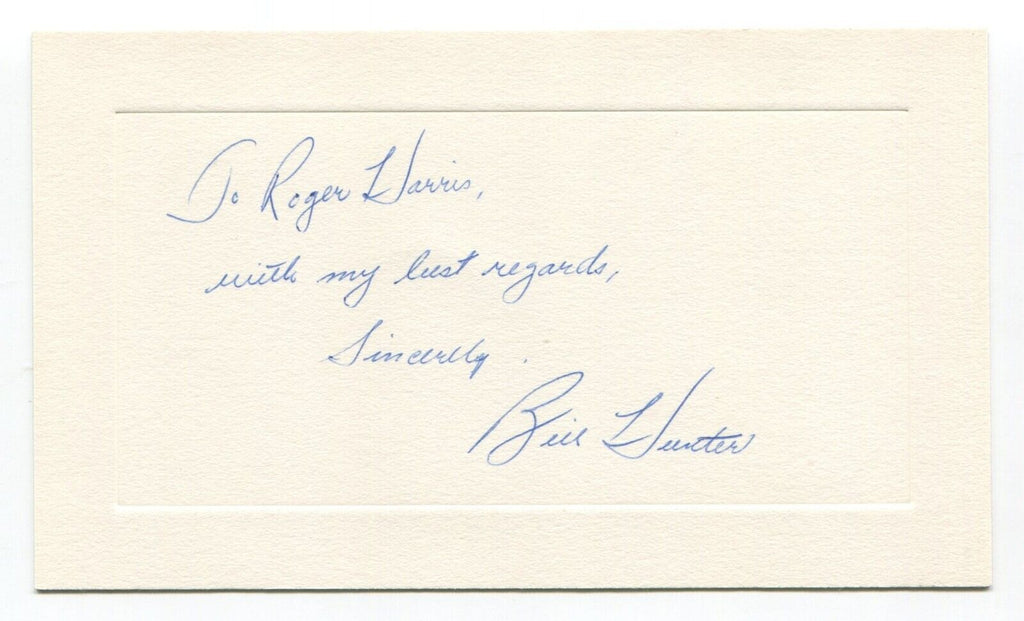 To Roger Harris,
with my best regards,
Sincerely.
Bill Hunter